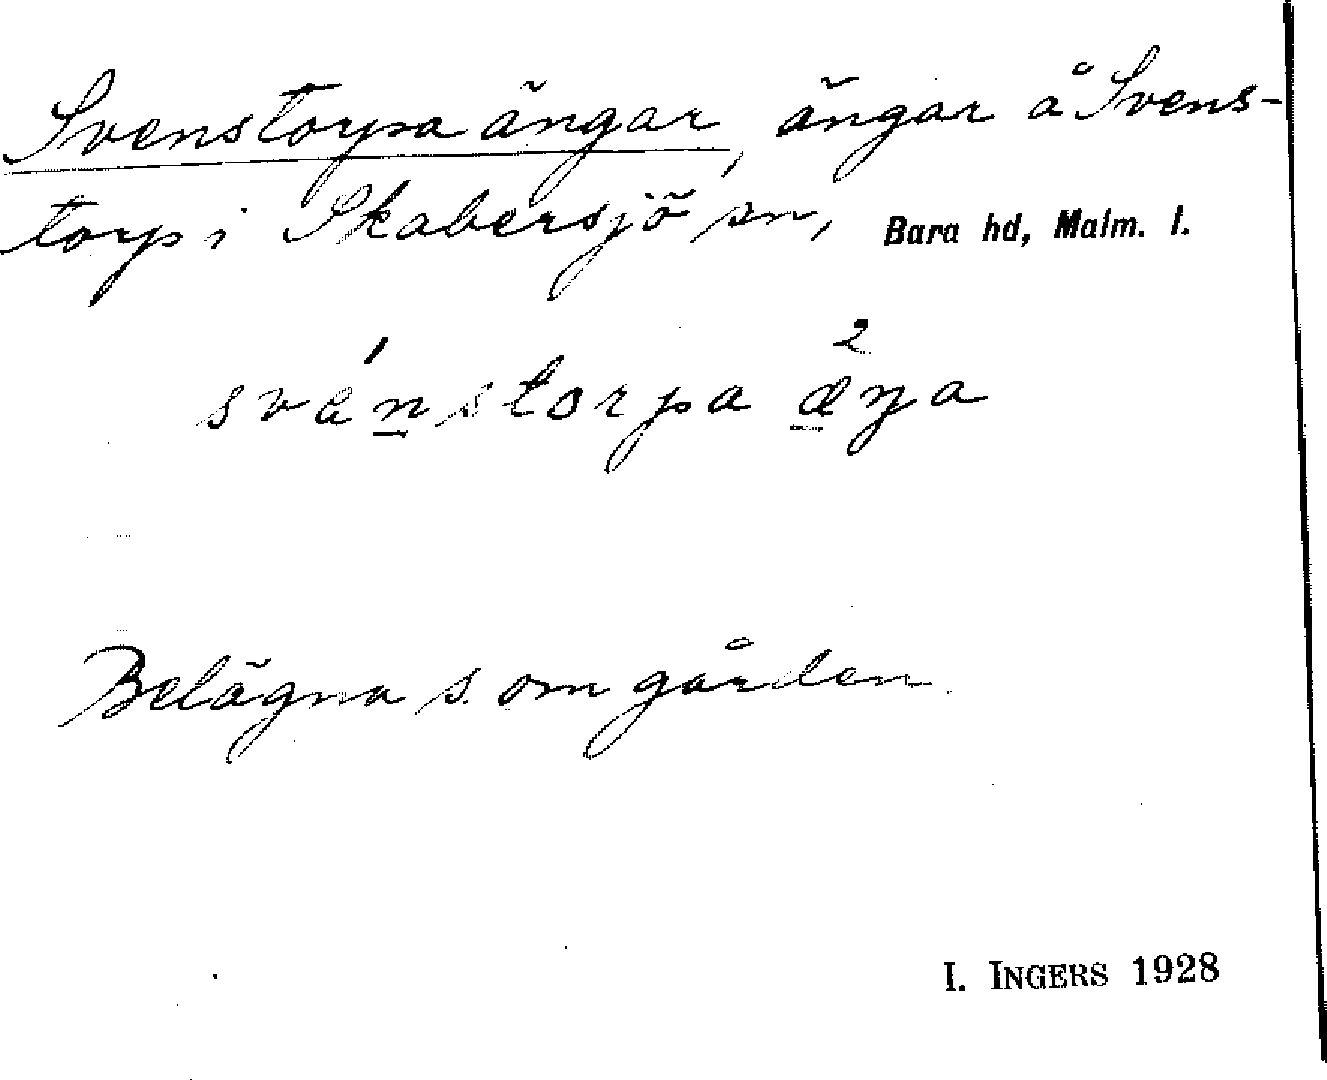 Svenstorpa ängar, ängar å Svens-
torp i Skabersjö sn, Bara hd, Malm. l.
svánstorpa æ̀ŋa
Belägna s. om gården.
I. INGERS 1928